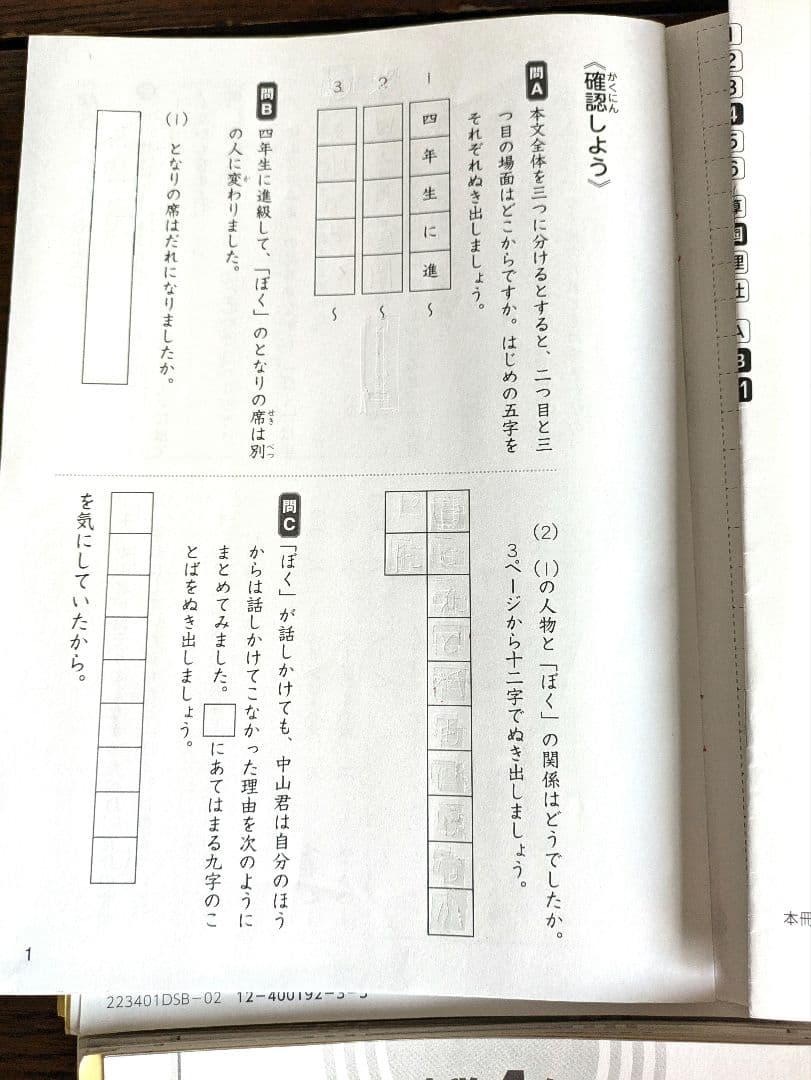 《確認しよう》
かくにん
問A
本文全体を三つに分けるとすると、二つ目と三
つ目の場面はどこからですか。はじめの五字を
それぞれぬき出しましょう。
1 四年生に進 〜
2 〜
3 〜
問B
四年生に進級して、「ぼく」のとなりの席は別
せき べつ
の人に変わりました。
か
(1) となりの席はだれになりましたか。
(2) (1)の人物と「ぼく」の関係はどうでしたか。
3ページから十二字でぬき出しましょう。
問C
「ぼく」が話しかけても、中山君は自分のほう
からは話しかけてこなかった理由を次のように
まとめてみました。□にあてはまる九字のこ
とばをぬき出しましょう。
を気にしていたから。
1
223401DSB-02 12-400192-3-5
1
2
3
4
5
6
算
国
理
社
A
B
1
本冊